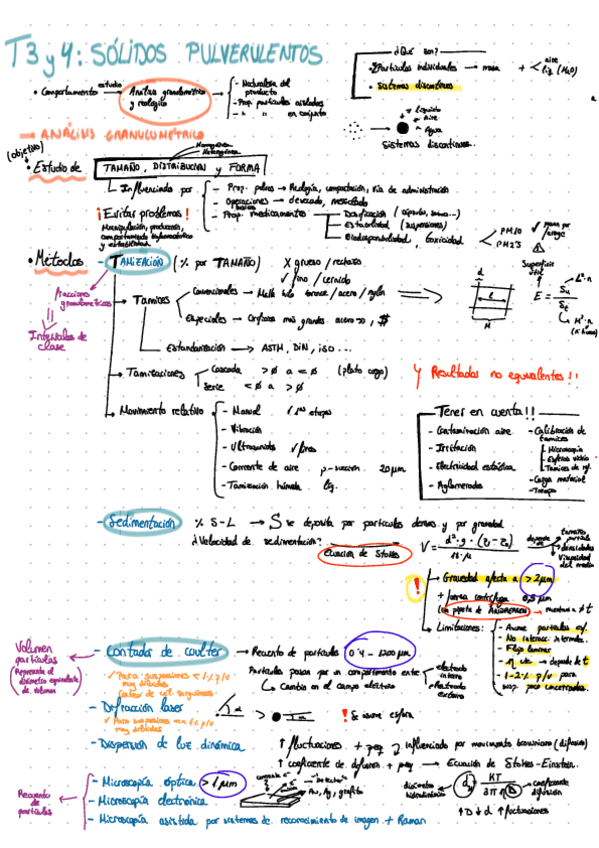 T3 y 4: SÓLIDOS PULVERULENTOS
¿Qué son?
Partículas individuales → masa + aire liq (H2O)
· Sistemas discontinuos
· Comportamiento estudio → Análisis granulométrico y reológico
- Naturaleza del producto
- Prop. partículas aisladas
- " " en conjunto
+ líquido
+ Aire
+ Agua
Sistemas discontinuos
→ ANÁLISIS GRANULOMÉTRICO
(objetivo)
Homogénea
Heterogénea
· Estudio de TAMAÑO, DISTRIBUCIÓN y FORMA
↳ Influenciado por
- Prop. polvos → Reología, compactación, vía de administración
- Operaciones → secado, mezclado
- Prop. medicamentos
Dosificación
Estabilidad (suspensiones)
Biodisponibilidad, toxicidad
PM10
PM2'5
¡Evitar problemas!
Manipulación, producción,
comportamiento
y estabilidad
· Métodos - TAMIZACIÓN (% por TAMAÑO)
X grueso / rechazo
✓ fino / cernido
Fracciones granulométricas
Intervalos de clase
→ Tamices
Convencionales → Malla hilo bronce / acero / nylon
Especiales → Orificios más grandes acero, $
Estandarización → ASTM, DIN, ISO...
d
L
M
Superficie útil
E = Su / St
L²·n
M²·n
→ Tamizaciones
Cascada >ø a <ø (plato ciego)
Serie <ø a >ø
Y Resultados no equivalentes!!
→ Movimiento relativo
- Manual
- Vibración
- Ultrasonidos ✓ finos
- Corriente de aire p-succión 20 μm
- Tamización húmeda liq.
Tener en cuenta!!
- Contaminación aire
- Irritación
- Electricidad estática
- Aglomerados
- Calibración de tamices
Microscopía
Esferas vidrio
Tamices de ref.
- Carga material
- Tiempo
- Sedimentación % S-L → S se deposita por partículas densas y por gravedad
¿Velocidad de sedimentación?
Ecuación de Stokes
V = d²·g·(ρ1-ρ2) / 18·μ
depende de
tamaño partícula
densidades
Viscosidad del medio
! → Gravedad afecta a >2 μm
+ fuerza centrífuga 0,5 μm
Con pipeta de ANDREASEN → muestra a ≠ t
Limitaciones:
- Asume partículas esf.
- No interacc. intermolec.
- Flujo laminar
- η cte → depende de t
- 1-2% p/v para susp. poco concentradas
Volumen partículas
(Representa el diámetro equivalente de volumen)
- Contador de coulter → Recuento de partículas 0'4 - 1200 μm
✓ Para suspensiones < 1% p/v muy diluidas
Conteo de cél. sanguíneas
Partículas pasan por un compartimento entre
electrodo interno
electrodo externo
↳ Cambio en el campo eléctrico
- Difracción láser
✓ Para suspensiones << 1% p/v muy diluidas
α > α
! Se asume esfera
- Dispersión de luz dinámica
↑ fluctuaciones + peq → influenciado por movimiento browniano (difusión)
↑ coeficiente de difusión + peq → Ecuación de Stokes-Einstein.
Recuento de partículas
- Microscopía óptica >1 μm
- Microscopía electrónica
Au, Ag, grafito
diámetro hidrodinámico
dH = KT / 3πηD
coeficiente difusión
↑D ↓d ↑fluctuaciones
- Microscopía asistida por sistemas de reconocimiento de imagen + Raman